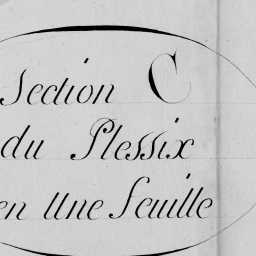 Section C
du Plessix
en Une feuille